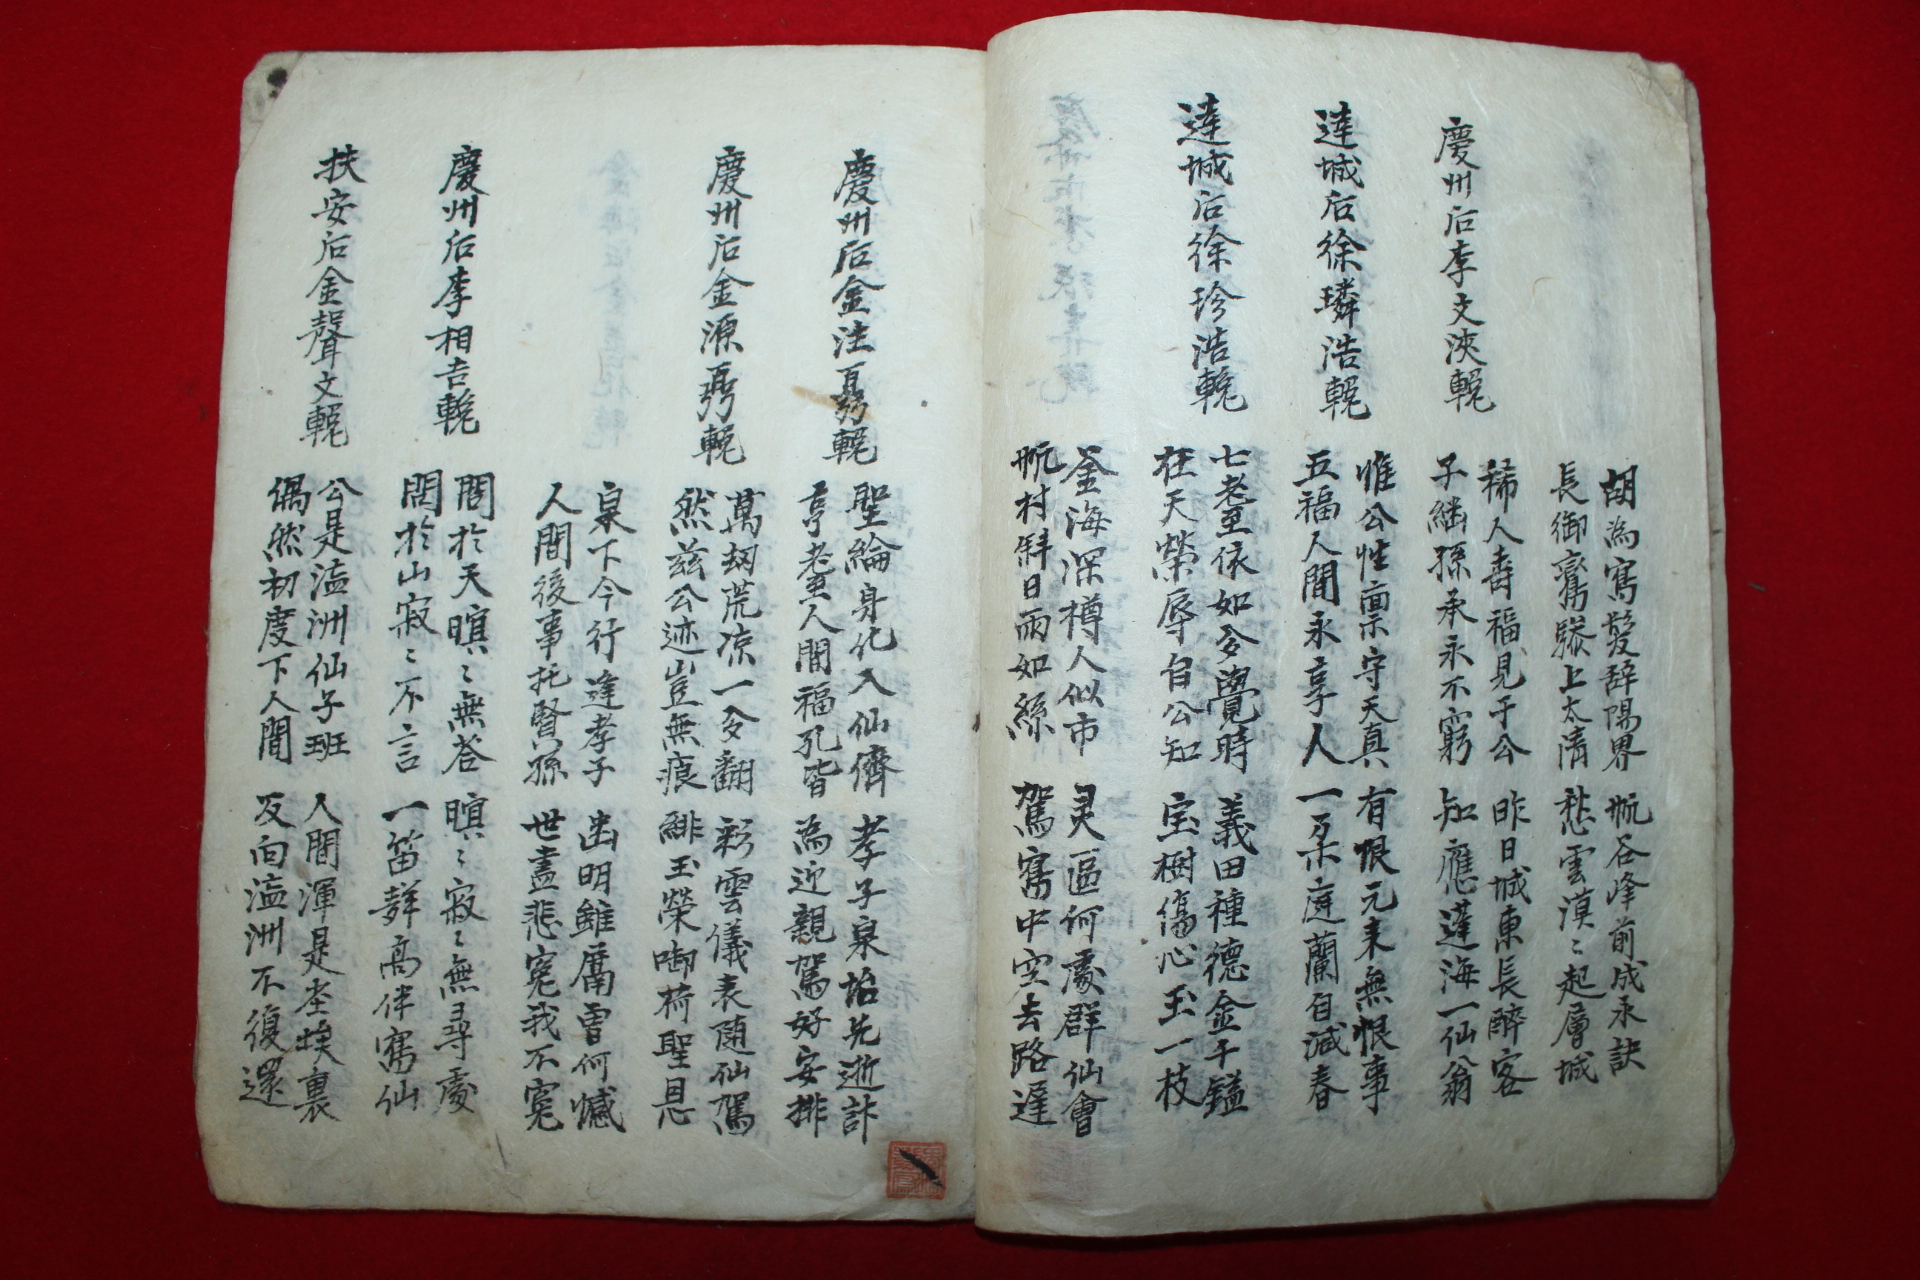 胡為寫髮辭陽界 瓶谷峰前成永訣
長御鸞驂上太清 愁雲漠〻起層城
慶州后李文浹輓
稀人壽福見于公 昨日城東長醉客
子繼孫承永不窮 知應蓬海一仙翁
達城后徐璘浩輓
惟公性稟守天真 有恨元来無恨事
五福人間永享人 一朶庭蘭自减春
達城后徐珍浩輓
七耋依如夛覺時 義田種德金千鎰
在天榮辱自公知 宝樹傷心玉一枝
釜海深樽人似市 灵區何處群仙會
瓶村斜日雨如絲 駕寉中空去路遲
慶州后金注輓
聖綸身化入仙儕 孝子泉坮先逝訃
享耋人間福孔皆 為迎親駕好安排
慶州后金源輓
萬刼荒凉一夛翻 彩雲儀表随仙駕
然兹公迹豈無痕 緋玉榮啣荷聖恩
泉下今行逢孝子 幽明雖属曽何憾
人間後事托賢孫 世盡悲寃我不寃
慶州后李相吉輓
問於天暝〻無荅 暝〻寂〻無尋處
問於山寂〻不言 一笛聲高伴寉仙
扶安后金聲文輓
公是瀛洲仙子班 人間渾是坐埃裏
偶然初度下人間 反向瀛洲不復還